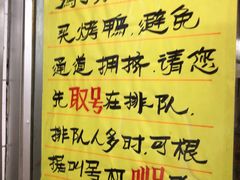 买烤鸭,避免
通道拥挤.请您
先取号在排队,
排队人多时,可根
据叫号机叫号